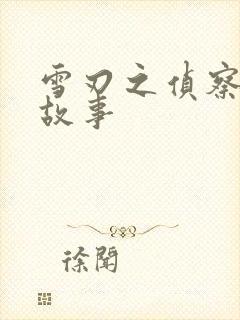 雪刃之偵察
故事
徐聞